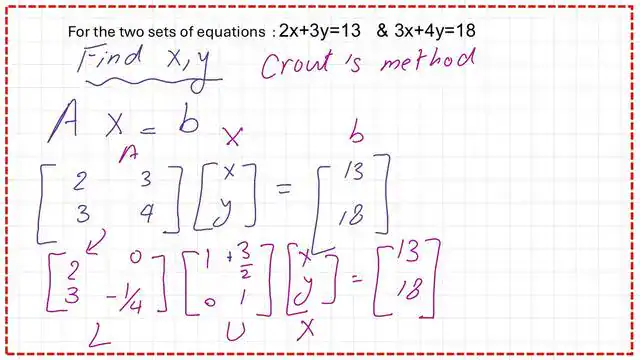 For the two sets of equations : 2x+3y=13 & 3x+4y=18
Find x,y Crout's method
A x = b
A X b
[2 3] [x] = [13]
[3 4] [y] [18]
[2 0] [1 +3/2] [x] = [13]
[3 -1/4] [0 1] [y] [18]
L U X